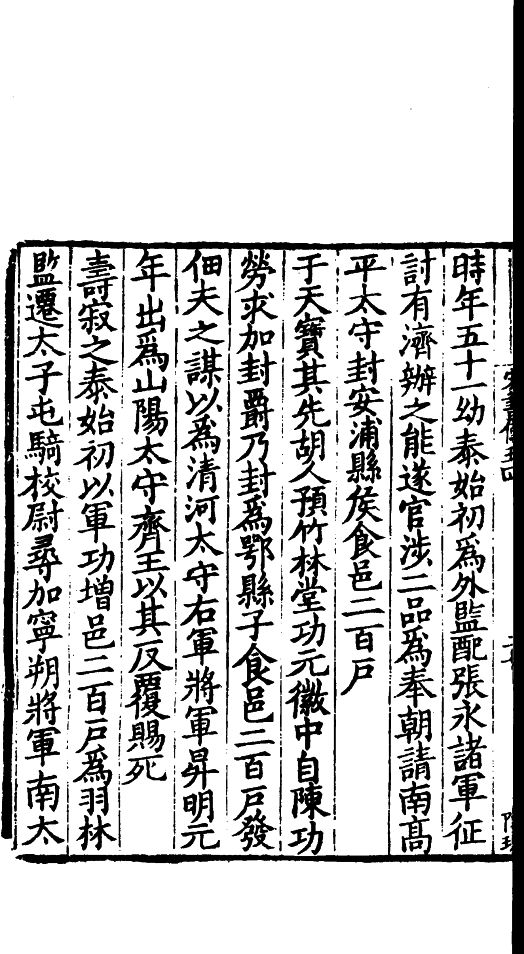 時年五十一幼泰始初爲外監配張永諸軍征
討有濟辦之能遂官涉三品爲奉朝請南髙
平太守封安浦縣侯食邑二百戸
于天寶其先胡人預竹林堂功元徽中自陳功
勞求加封爵乃封爲鄂縣子食邑二百戸發
佃夫之謀以爲清河太守右軍將軍昇明元
年出爲山陽太守齊王以其反覆賜死
壽寂之泰始初以軍功増邑二百戸爲羽林
監遷太子屯騎校尉尋加寧朔將軍南太